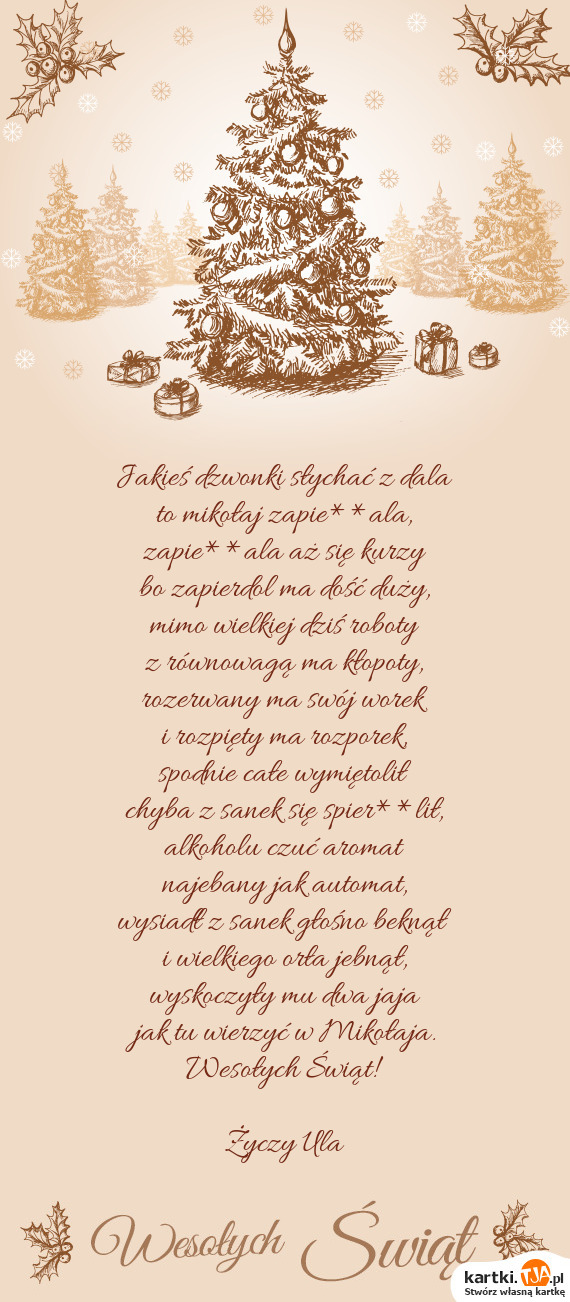 Jakieś dzwonki słychać z dala
to mikołaj zapie* *ala,
zapie* *ala aż się kurzy
bo zapierdol ma dość duży,
mimo wielkiej dziś roboty
z równowagą ma kłopoty,
rozerwany ma swój worek
i rozpięty ma rozporek,
spodnie całe wymiętolił
chyba z sanek się spier* *lił,
alkoholu czuć aromat
najebany jak automat,
wysiadł z sanek głośno beknął
i wielkiego orła jebnął,
wyskoczyły mu dwa jaja
jak tu wierzyć w Mikołaja.
Wesołych Świąt!
Życzy Ula
Wesołych Świąt
kartki.TJA.pl
Stwórz własną kartkę